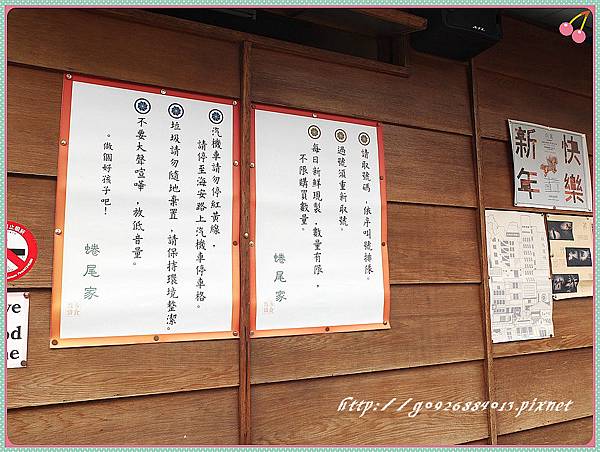 請取號碼，依序叫號排隊。
過號須重新取號。
每日新鮮現製，數量有限，
不限購買數量。
蜷尾家
汽機車請勿停紅黃線，
請停至海安路上汽機車停車格。
垃圾請勿隨地棄置，請保持環境整潔。
不要大聲喧嘩，放低音量。
。做個好孩子吧！
蜷尾家
新年
快樂
http://g0926884013.pixnet